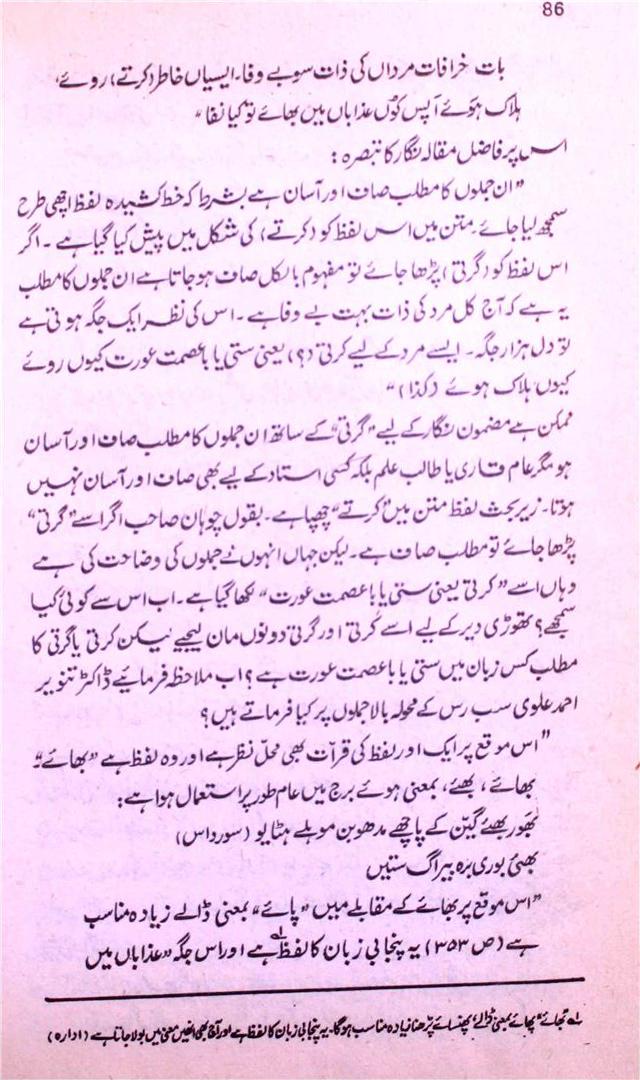 86
بات خرافات مرداں کی ذات سوبے وفا۔ ایسیاں خاطر (کرتے) روئے،
ہلاک ہوئے آپس کوں عذاباں میں بھائے تو کیا نفا“
اس پر فاضل مقالہ نگار کا تبصرہ :
”ان جملوں کا مطلب صاف اور آسان ہے بشرط کہ خط کشیدہ لفظ اچھی طرح
سمجھ لیا جائے۔ متن میں اس لفظ کو (کرتے) کی شکل میں پیش کیا گیا ہے ۔ اگر
اس لفظ کو (گرتی) پڑھا جائے تو مفہوم بالکل صاف ہو جاتا ہے ان جملوں کا مطلب
یہ ہے کہ آج کل مرد کی ذات بہت بے وفا ہے ۔ اس کی نظر ایک جگہ ہوتی ہے
تو دل ہزار جگہ ۔ ایسے مرد کے لیے کرتی (؟) یعنی ستی یا با عصمت عورت کیوں روئے
کیوں ہلاک ہوئے (کذا)“
ممکن ہے مضمون نگار کے لیے ”گرتی“ کے ساتھ ان جملوں کا مطلب صاف اور آسان
ہو مگر عام قاری یا طالب علم بلکہ کسی استاد کے لیے بھی صاف اور آسان نہیں
ہوتا۔ زیر بحث لفظ متن میں ”کرتے“ چھپا ہے۔ بقول چوہان صاحب اگر اسے ”گرتی“
پڑھا جائے تو مطلب صاف ہے۔ لیکن جہاں انہوں نے جملوں کی وضاحت کی ہے
وہاں اسے ”کرتی یعنی ستی یا با عصمت عورت“ لکھا گیا ہے ۔ اب اس سے کوئی کیا
سمجھے؟ تھوڑی دیر کے لیے اسے کرتی اور گرتی دونوں مان لیجیے لیکن کرتی یا گرتی کا
مطلب کس زبان میں ستی یا با عصمت عورت ہے؟ اب ملاحظہ فرمائیے ڈاکٹر تنویر
احمد علوی سب رس کے محولہ بالا جملوں پر کیا فرماتے ہیں؟
”اس موقع پر ایک اور لفظ کی قرات بھی محل نظر ہے اور وہ لفظ ہے ”بھائے“۔
بھائے ، بھئے ، بمعنی ہوئے برج میں عام طور پر استعمال ہوا ہے :
بھور بھئے گیّن کے پاچھے مدھوبن موہلے ہٹایو (سورداس)
بھئی بوری برہ بیراگ ستیں
”اس موقع پر بھائے کے مقابلے میں ”پائے“ بمعنی ڈالے زیادہ مناسب
ہے (ص ۳۵۳) یہ پنجابی زبان کا لفظ ہے اور اس جگہ ”عذاباں میں
؎۱ بھائے، پھائے بمعنی ڈالے، پھنسائے پڑھنا زیادہ مناسب ہوگا۔ یہ پنجابی زبان کا لفظ ہے اور آج بھی انہیں معنی میں بولا جاتا ہے (ادارہ)